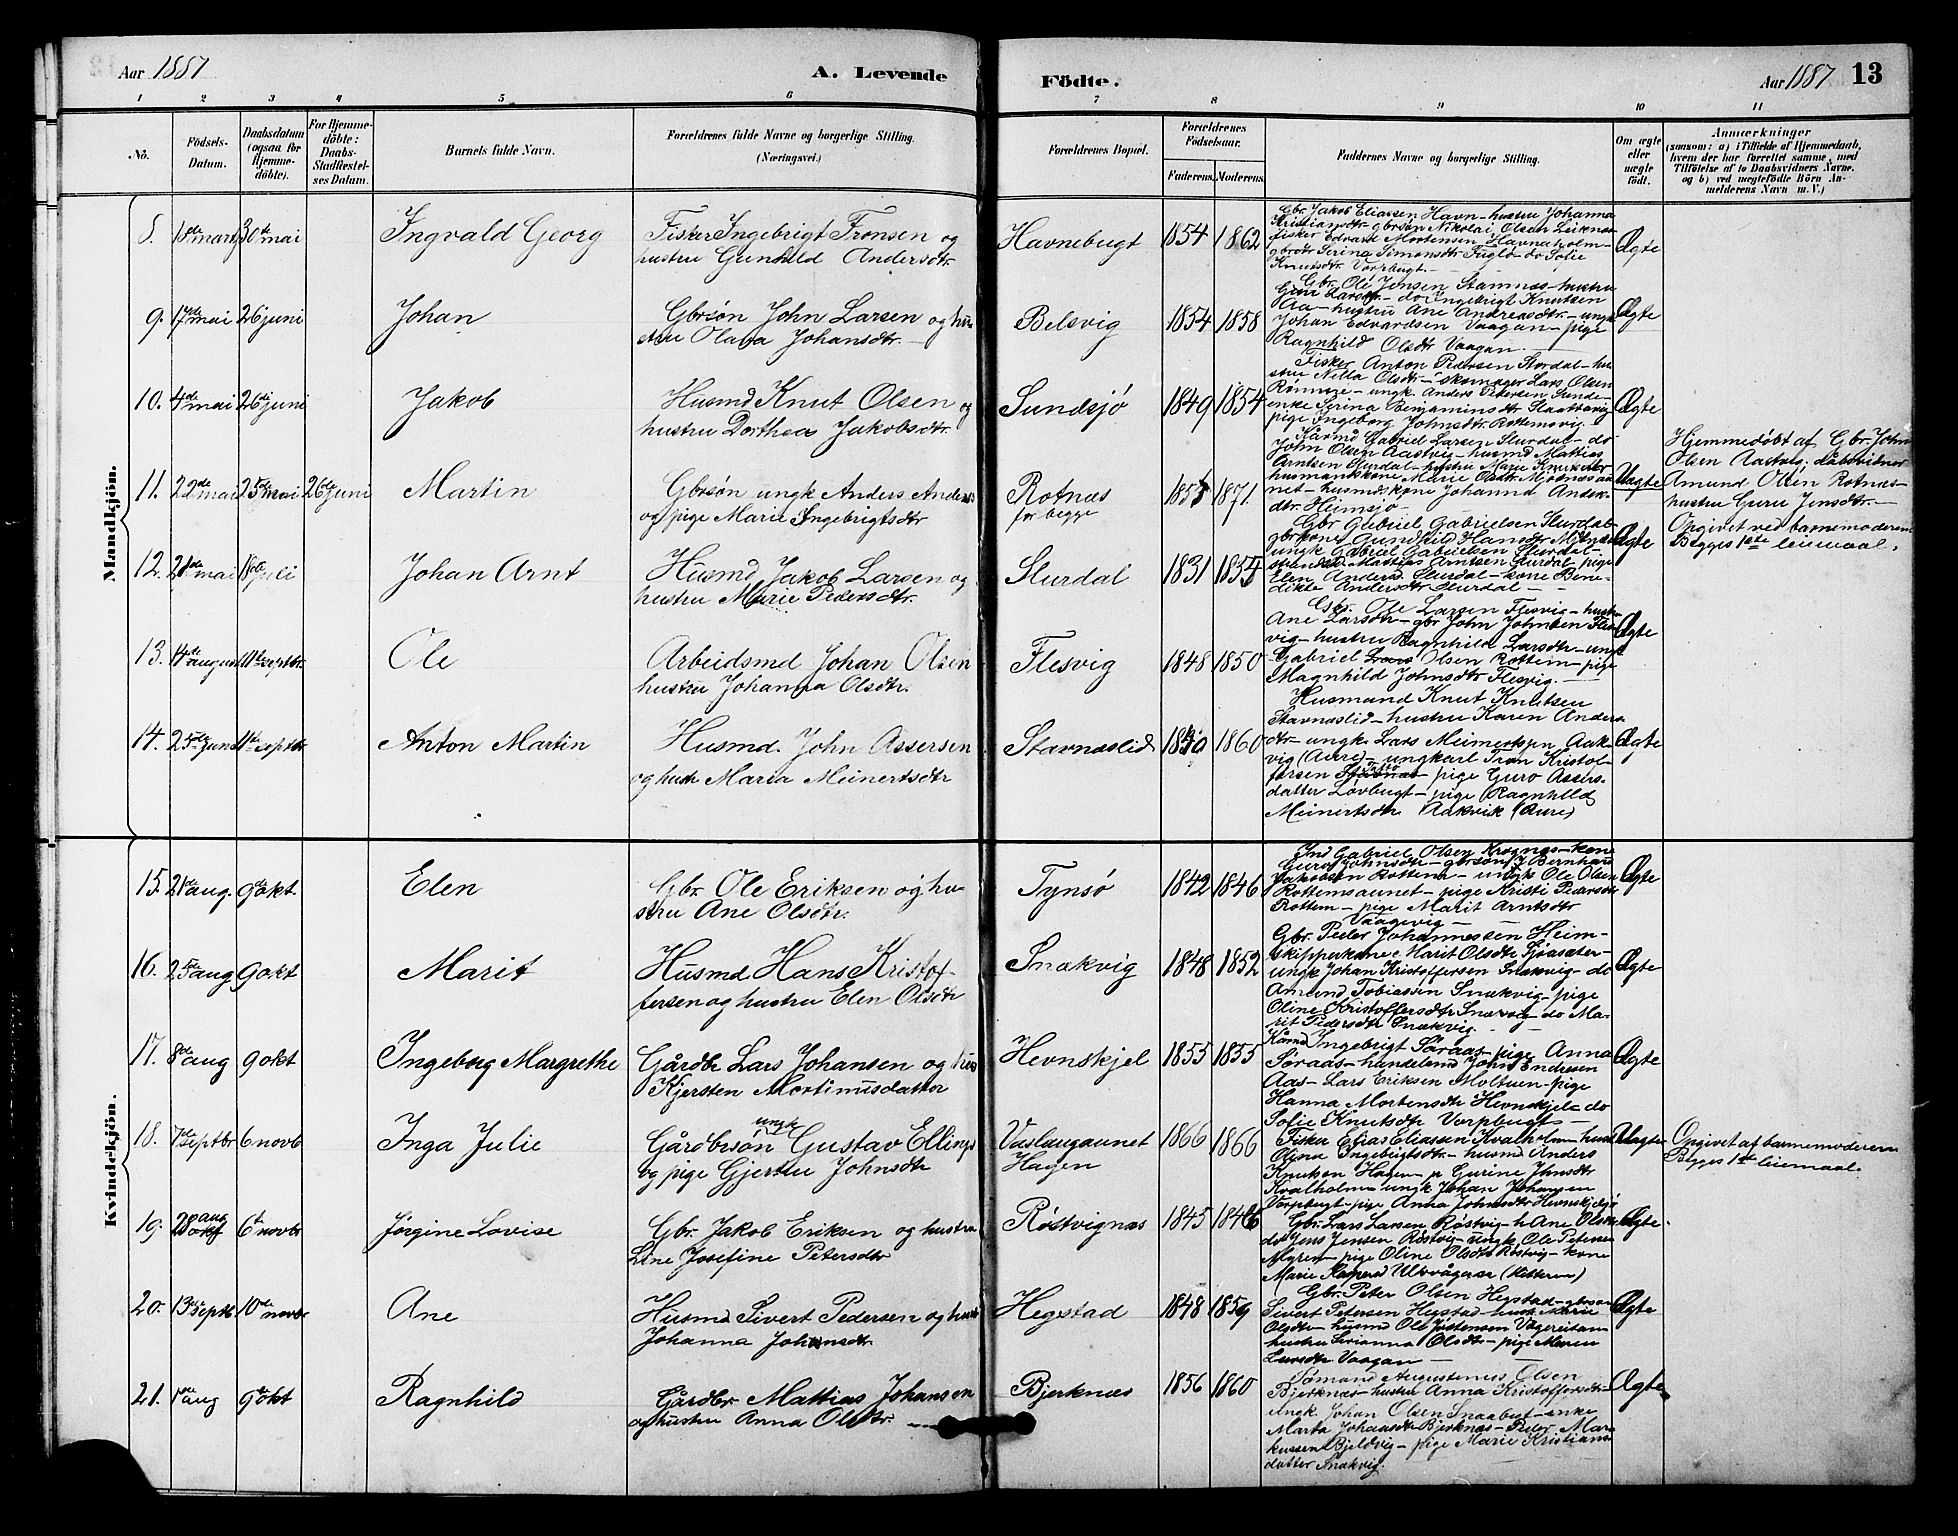 Aar 1887
A. Levende
Födte.
Aar 1887 13
1 2 3 4 5 6 7 8 9 10 11
No.
Födsels-
Datum.
Daabsdatum
(ogsaa for
Hjemme-
döbte).
For Hjemme-
döbte:
Daabs-
Stadfæstel-
ses Datum.
Barnets fulde Navn.
Forældrenes fulde Navne og borgerlige Stilling.
(Næringsvei.)
Forældrenes Bopæl.
Forældrenes
Födselsaar.
Faderens. Moderens.
Faddernes Navne og borgerlige Stilling.
Om ægte
eller
uægte
födt.
Anmærkninger
(saasom: a) i Tilfælde af Hjemmedaab,
hvem der har forrettet samme, med
Tilföielse af to Daabsvidners Navne.
og b) ved uægtefödte Börn An-
melderens Navn m. V.)
Mandkjön.
8. 30te mai Ingvald Georg Fisker Ingebrigt Fronsen og
hustru Gunhild Andersdtr.
Havnebugt 1854 1862 Ægte
Gbr. Jakob Eliassen Havn - hustru Johanna
Kristiansdtr - gbrsön Nikolai Olsen
fisker Edvard Mortensen Havnaholm -
gbrdtr Serina Simonsdtr Fuglö - do Sofie
Knutsdtr Vorpbugt.
9. 17de mai 26 juni Johan Gbrsön John Larsen og hu-
stru Olava Johansdtr.
Belsvig 1854 1858 Ægte
Gbr. Ole Jensen Stamnes - hustru
Guru Larsdtr - do Ingebrigt Knutsen
Aa - hustru Ane Andreasdtr - ungk
Johan Edvardsen Vaagan - pige
Ragnhild Olsdtr Vaagan.
10. 4de mai 26 juni Jakob Husmd Knut Olsen og
hustru Dorthea Jakobsdtr.
Sundsjö 1849 1854 Ægte
Fisker Anton Pedersen Stordal - hu-
stru Nilla Olsdtr - skomager Lars Olsen
ungk Anders Petersen Sunde -
enke Serina Benjaminsdtr
pige Ingeborg Johnsdtr Rottemsvig.
11. 22de mai 25de mai 26de juni Martin Gbrsön ungk Anders Anders.
og pige Marie Ingebrigtsdtr
Rotnæs
for begge
1871. Uægte
Kaarmd Gabriel Larsen Slurdal - do
John Olsen Aastvig - husmd Mattias
Arntsen Slurdal - hustru Marie
husmandskone Marie Olsdtr
net - husmdskone Johanna Anders-
dtr. Heimsjö
Hjemmedöbt af Gbr. John
Olsen Aastvig. dåbsvidner
Amund Olsen Rotnæs -
hustru Guru Jensdtr. -
Opgivet ved barnemoderen.
Begges 1ste leiemaal.
12. mai juli Johan Arnt Husmd Jakob Larsen og
hustru Marie Pedersdtr.
Slurdal 1831 Ægte
Gbr Gabriel Gabrielsen Slurdal -
gbrkone Gunhild Hansdtr
ungk Gabriel Gabrielsen Slurdal -
Mattias Arntsen Slurdal pige
Elen Andersd Slurdal - kone Bene-
dikte Andersdtr Slurdal -
13. 14de august 11te septbr. Ole Arbeidsmd Johan Olsen
hustru Johanna Olsdtr.
Flesvig 1848 1850 Ægte
Gbr. Ole Larsen Flesvig - hustru
Ane Larsdtr - gbr John Johnsen Fles-
vig - hustru Ragnhild Larsdtr - ungk
Gabriel Olsen Rottem - pige
Magnhild Johnsdtr Flesvig.
14. 25de juni 11te septbr. Anton Martin Husmd. John Assersen
og hustr Maria Meinertsdtr
Stavnæslid 1860 Ægte
Husmand Knut Knutsen
Stavnæslid - hustru Karen Anders-
dtr - ungk Lars Meinertsen Aak-
vig (Aure) - ungkarl Tron Kristof-
fersen - pige Guro Assers-
datter Lövbugt - pige Ragnhild
Meinertsdtr Aakvik (Aure)
Kvindekjön.
15. 21de aug. 9de okt. Elen Gbr. Ole Eriksen og hu-
stru Ane Olsdtr.
Tynsö 1842 1846 Ægte
Gabriel Olsen Krognæs - kone
Guro Johnsdtr - gbrsön Bernhard
Jakobsen Rottem - ungk Ole Olsen
Rottemsaunet - pige Kristi Pedersdtr
Rottem - pige Marit Arntsdtr
Vaagevig -
16. 25de aug 9 okt Marit Husmd Hans Kristof-
fersen og hustru Elen Olsdtr
Snækvig 1848 1852 Ægte
Gbr. Peder Johannessen Heim -
skipperkone Marit Olsdtr
ungk Johan Kristoffersen Snækvig - do
Amund Tobiassen Snækvig - pige
Oline Kristoffersdtr Snækvig - do Ma-
rit Pedersdtr Snækvig.
17. 8de aug 9 okt Ingeborg Margrethe Gårdbr Lars Johansen og hus
Kjersten Mortinusdatter
Hevnskjel 1855 1855 Ægte
Kårmd Ingebrigt Söraas - pige Anna
Söraas - handelsmd John Endresen
Aas - Lars Eriksen Moltuen - pige
Hanna Mortensdtr Hevnskjel - do
Sofie Knutsdtr Vorpbugt -
18. 7de septbr 6 novb Inga Julie Gårdbrsön ungk Gustav Ellings
og pige Gjertru Johnsdtr
Vaslaugaunet
Hagen
1866 1866 Uægte
Fisker Elias Eliassen Kvalholm - hust
Olava Ingebrigtsdtr - husmd Anders
Knutsen Hagen - p Gurine Jhnsdtr
Kvalholm - ungk Johan Johansen
Vorpbugt - pige Anna Johnsdtr Hevnskjelsö
Opgivet af barnemoderen
Begges 1ste leiemaal.
19. 28 aug 6te novbr Jörgine Lovise Gbr. Jakob Eriksen og hustru
Line Josefine Petersdtr
Röstvignæs 1845 Ægte.
Gbr. Lars Larsen Röstvig - h Ane Olsdtr
do Jens Jensen Röstvig - ungk Ole Petersen
Myren - pige Oline Olsdtr Röstvig - kone
Marie Kaspersd Ulvvågen (Hitteren)
20. 13de septbr 10de novbr Ane Husmd Sivert Pedersen og hustr
Johanna
Hegstad 1848 1859 Ægte
Gbr. Peter Olsen Hegstad - gbrsön
Sivert Petersen Hegstad - hust. Marie
Olsdtr - husmd Ole Jostensen
hustru Serianna Olsdtr - pige Maren
Larsdtr Vaagan
21. aug 9de okt Ragnhild Gårdbr Mattias Johansen
og hustru Anna Olsdtr.
Bjerknæs 1856 1860 Ægte
Sömand Augustinus Olsen
Bjerknæs - hustru Anna Kristoffersdtr -
ungk Johan Olsen - enke
Marta Johansdtr Bjerknæs - Peder Mar-
kussen Bjeldvig - pige Marie Kristians-
datter Snækvig.